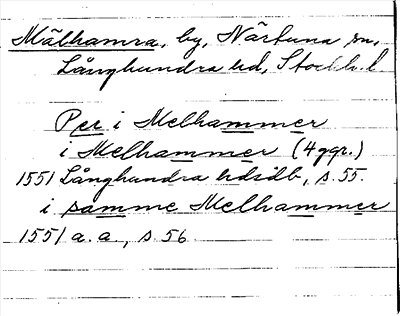 Mälhamra, by, Närtuna sn,
Långhundra hd, Stockh. l
Per i Melhammer
i Melhammer (4 ggr.)
1551 Långhundra hdsdb, s. 55.
i samme Melhammer
1551 a. a., s. 56